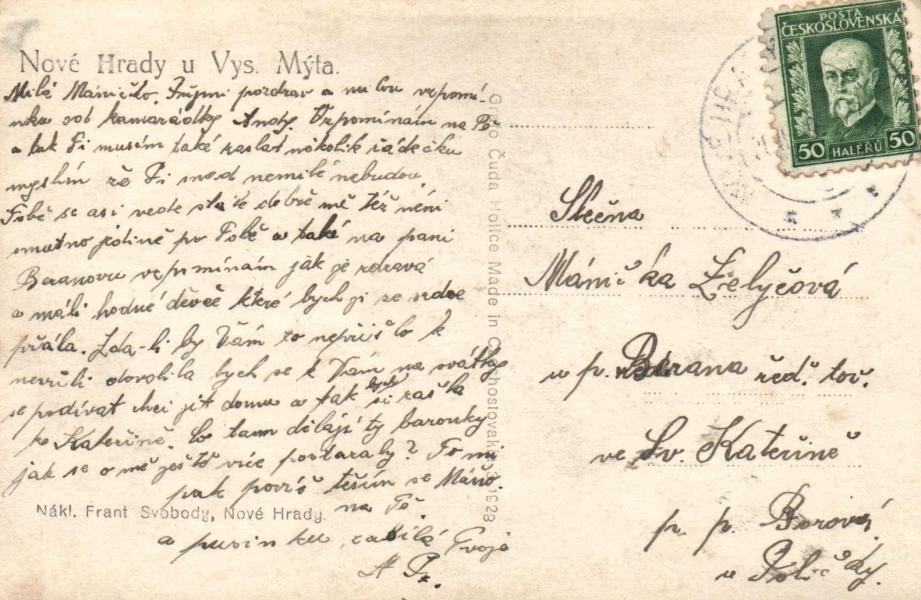 Nové Hrady u Vys. Mýta.
Milá Máničko. Přijmi pozdrav a milou vzpomí-
nku od kamarádky Andy. Vzpomínám na Tě
a tak Ti musím také zaslat několik řádečku
myslím že Ti snad nemilé nebudou
Tobě se asi vede stále dobře mě též není
smutno jedině po Tobě a také na paní
Beranovu vzpomínám jak je zdravá
a máli hodné děvče které bych jí ze srdce
přála. Zda-li by Vám to nepřišlo k
nevůli dovolila bych se k Vám na svátky
se podívat chci jít domu a tak bych si zašla
ke Kateřině. Co tam dělají ty barouky
jak se o mě ještě více postaraly? To mi
pak povíš těším se Máňo
na Tě
a pusinku zasílá Tvoje
A P.
Nákl. Frant Svobody, Nové Hrady.
Čuda Holice Made in 1928
POSTA
ČESKOSLOVENSKÁ
50 HALÉŘŮ 50
Slečna
Mánička Zelyčová
u p. Berana řed. tov.
ve Sv. Kateřině
p. p. Borová
u Poličky.